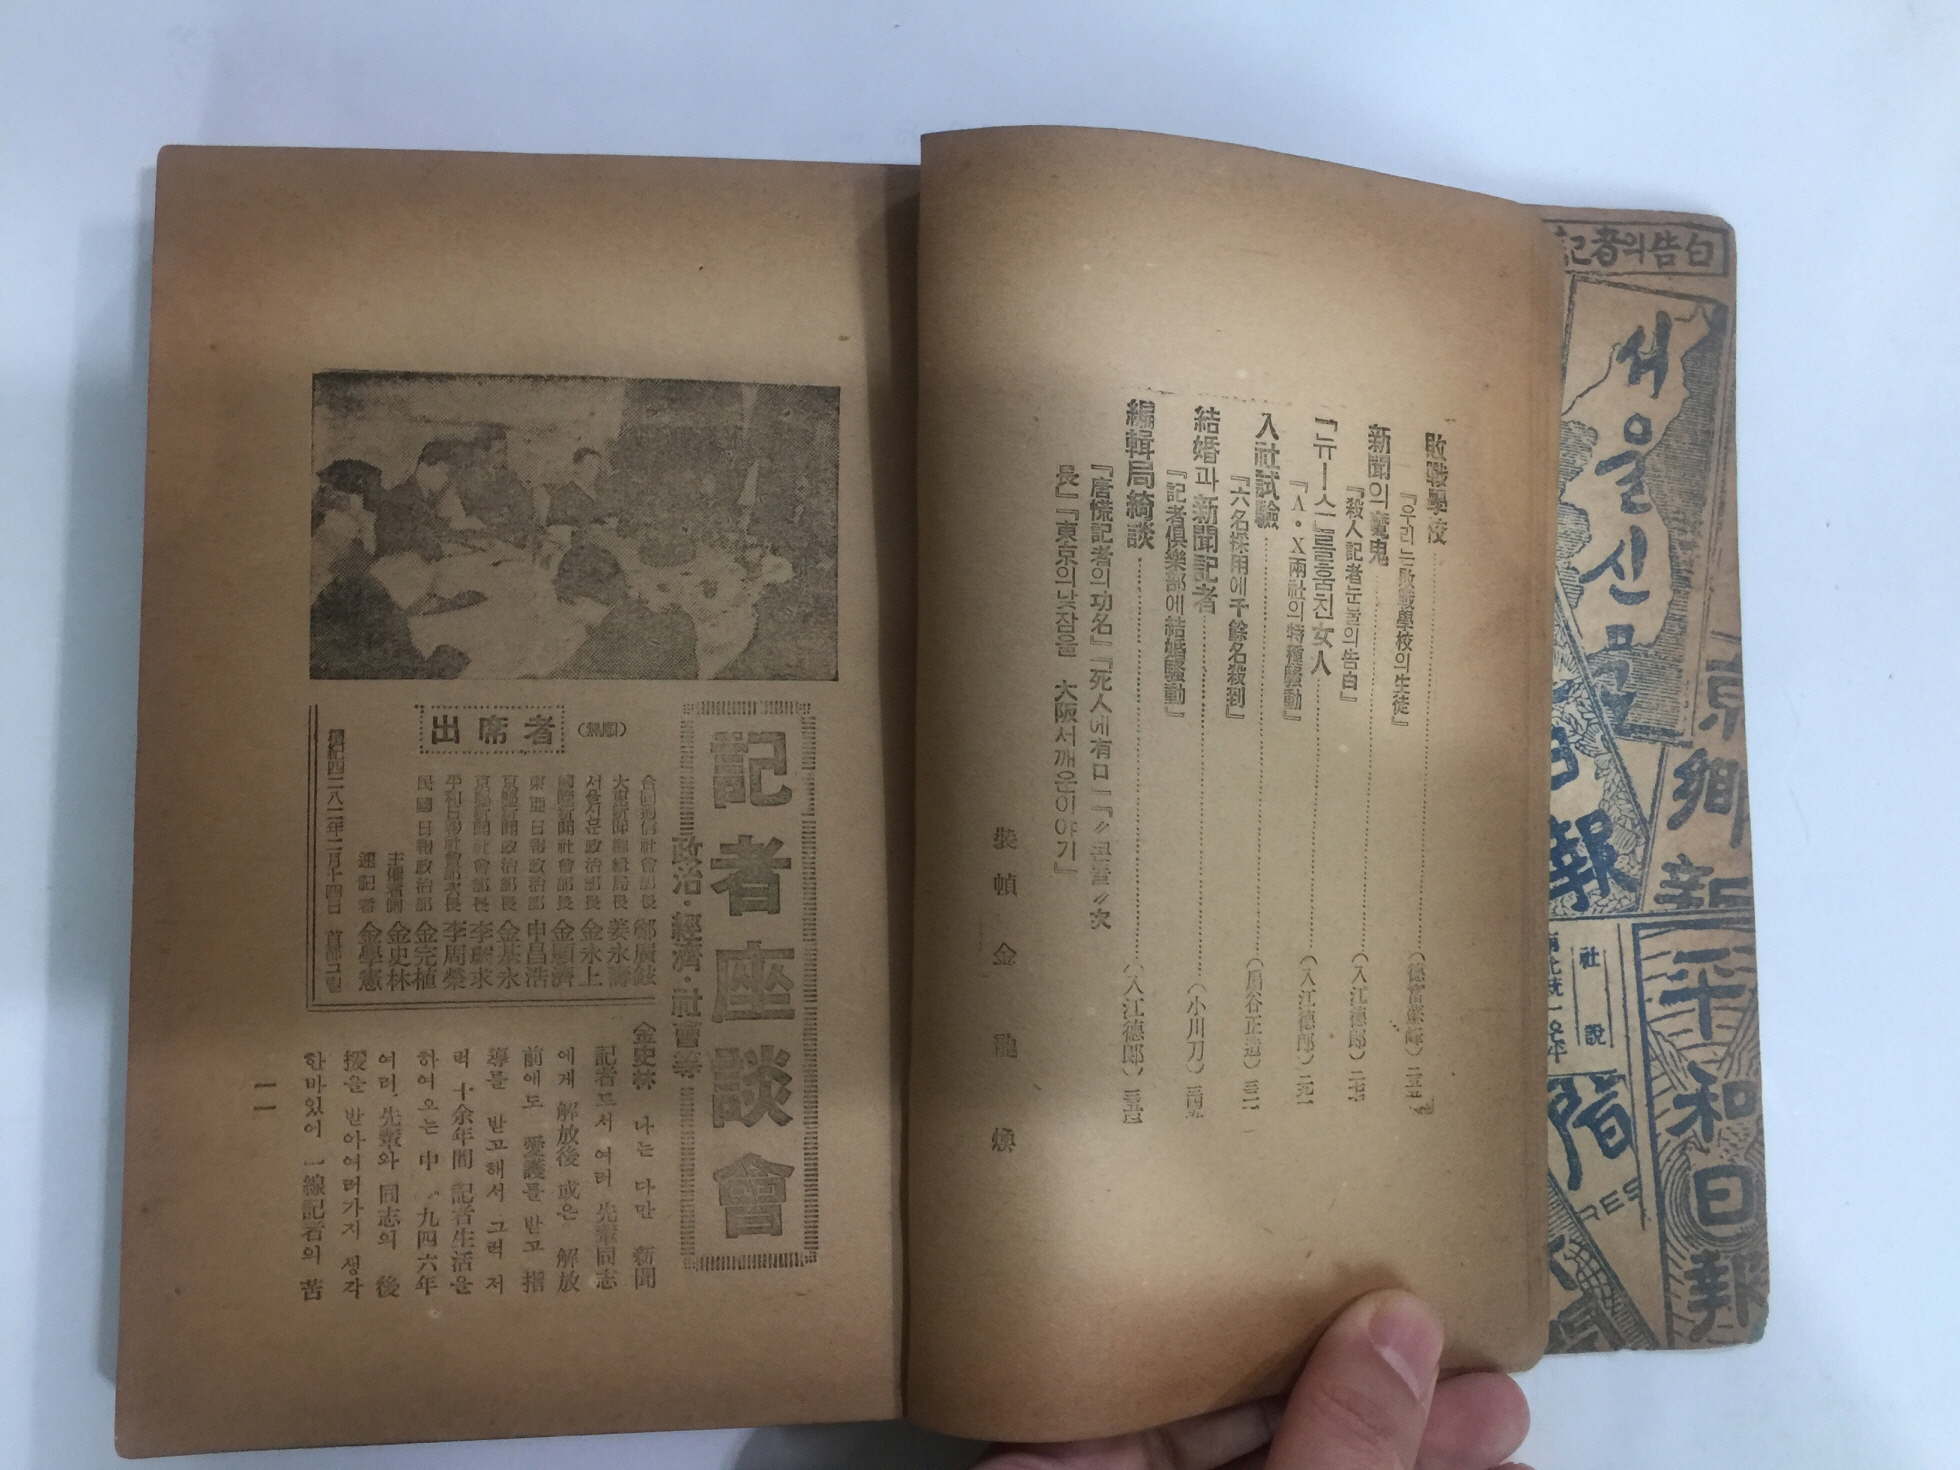 敗戰學校
『우리는敗戰學校의生徒』
(德富蘇峰)
新聞의魔鬼
『殺人記者눈물의告白』
(入江德郎)
「뉴ー스」를훔친女人
『A・X兩社의特種騷動』
(入江德郎)
入社試驗
『六名採用에千餘名殺到』
(扇谷正造)
結婚과新聞記者
『記者俱樂部에結婚騷動』
(小川刀)
編輯局綺談
(入江德郎)
『唐慌記者의功名』『死人에有口』『〃코풀〃次
長』『東京의낮잠을 大阪서깨운이야기』
裝幀 金龍煥
記者座談會
政治・經濟・社會等
出席者 (無順)
合同通信社會部長 鄭廣鉉
서울신문政治部長 金永上
國際新聞社會部長 金顯濟
東亞日報政治部 申昌浩
京鄕新聞政治部長 金基永
民國日報政治部 金完植
主催者側 金史林
速記者 金學憲
檀紀四二八二年二月十四日 首都그릴
金史林 나는 다만 新聞
記者로서 여러 先輩同志
에게 解放後 或은 解放
前에도 愛護를 받고 指
導를 받고해서 그럭저
럭 十余年間 記者生活을
하여오는中 一九四六年
여러 先輩와 同志의 後
援을 받아여러가지 생각
한바있어 一線記者의 苦
一一
記者의告白
서울신문
京鄕新
日報
平和日報
社說